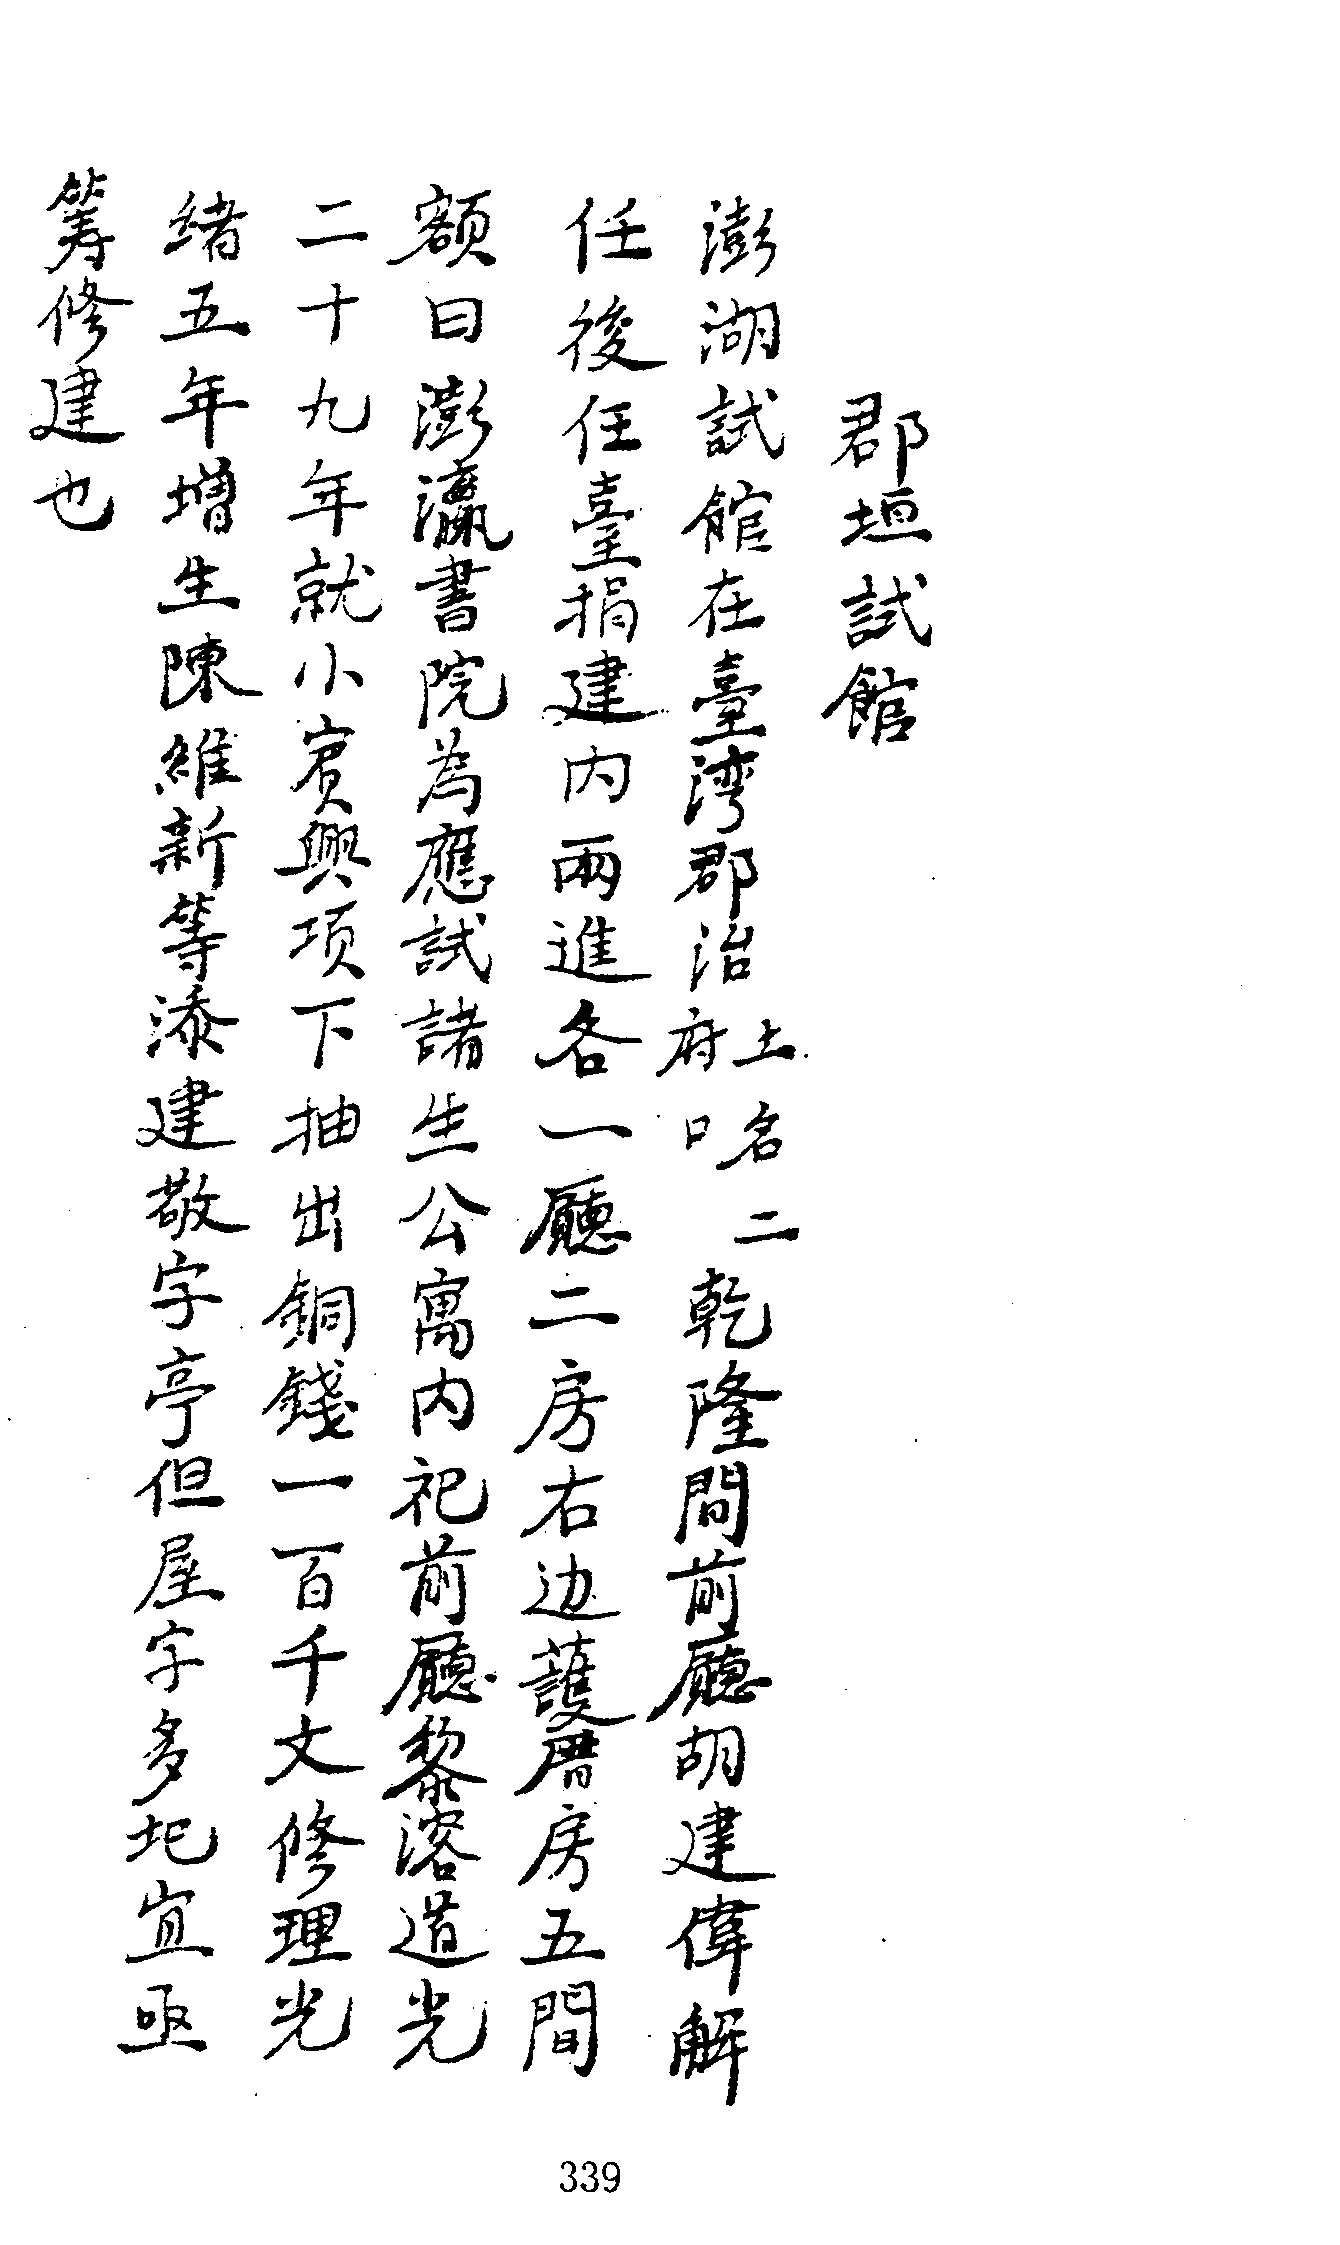 郡垣試館
澎湖試館在臺湾郡治土名二府口乾隆間前廳胡建偉解
任後任臺捐建内兩進各一廳二房右边護厝房五間
額曰澎瀛書院為應試諸生公寓内祀前廳黎溶道光
二十九年就小賓興項下抽出銅錢一百千文修理光
绪五年增生陳維新等添建敬字亭但屋宇多圮宜亟
筹修建也
339